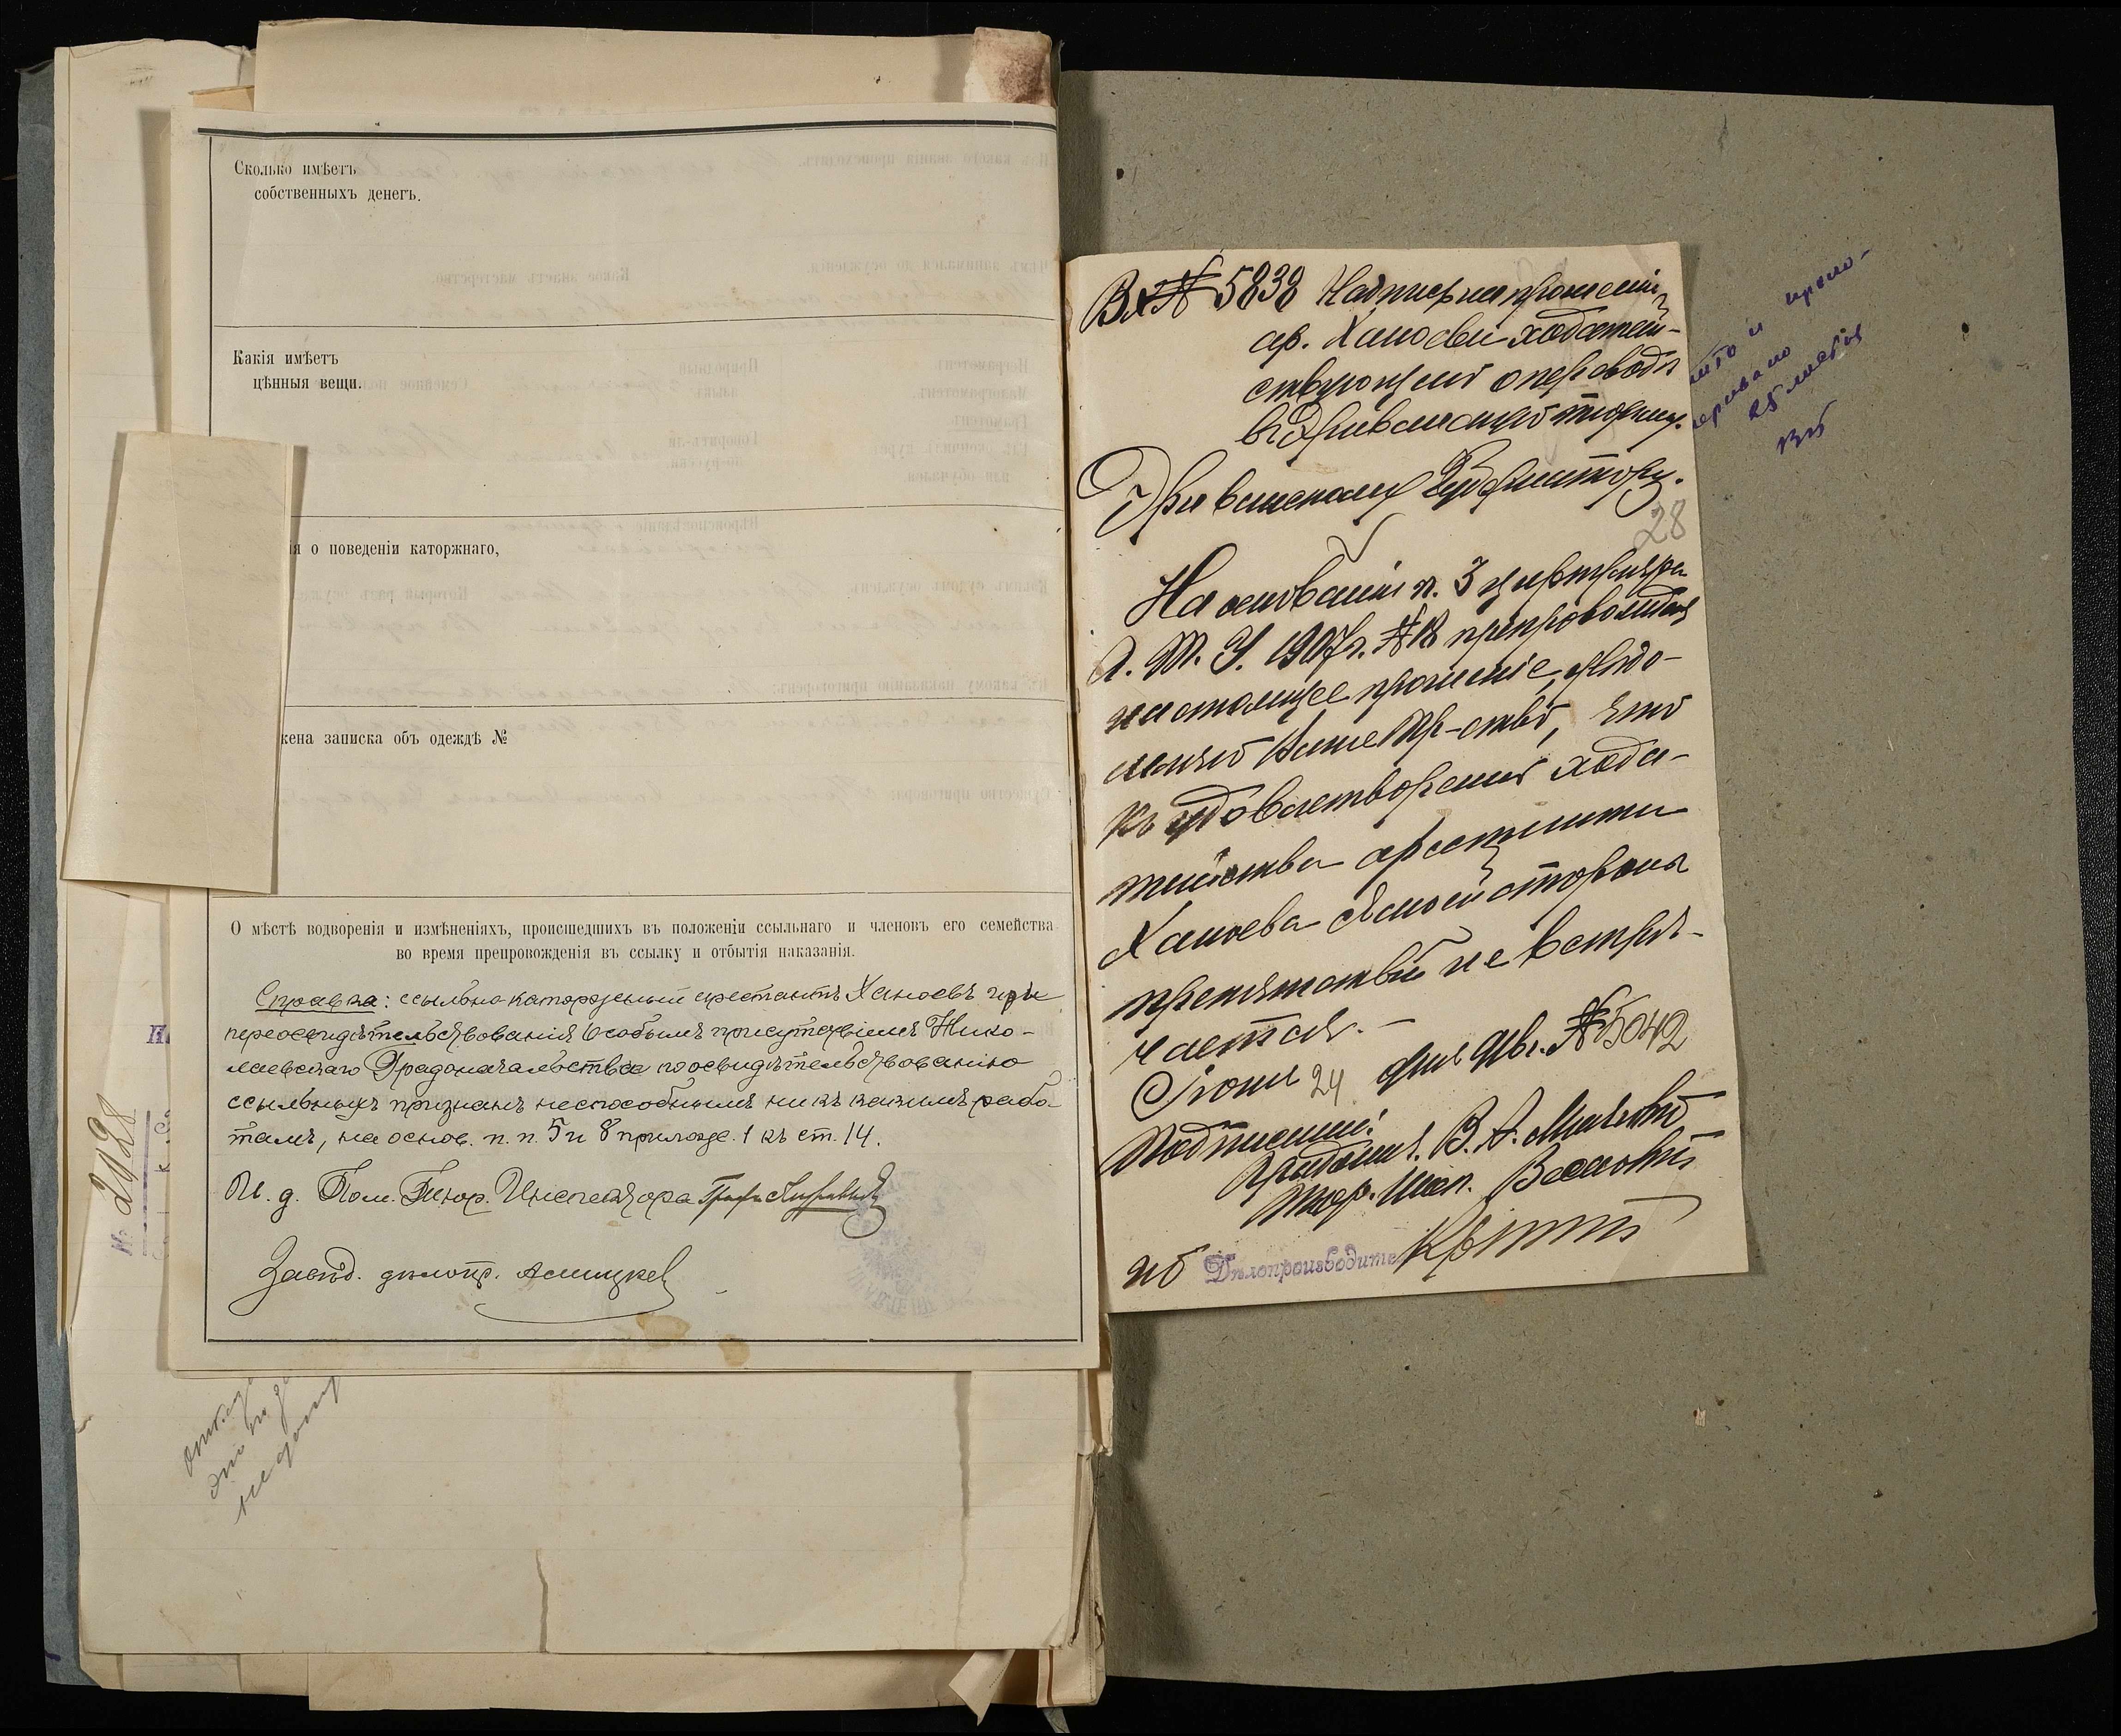 Сколько имѣетъ
собственныхъ денегъ.
Какія имѣетъ
цѣнныя вещи.
ія о поведеніи каторжнаго,
жена записка объ одеждѣ №
О мѣстѣ водворенія и измѣненіяхъ, происшедшихъ въ положеніи ссыльнаго и членовъ его семейства
во время препровожденія въ ссылку и отбытія наказанія.
Справка: ссыльно каторжный арестантъ Ханоевъ при
переосвидѣтельствованіи Особымъ присутствіемъ Нико-
лаевскаго Градоначальства по освидѣтельствованію
ссыльныхъ признанъ неспособнымъ ни къ какимъ рабо-
тамъ, на основ. п. п. 5 и 8 прилож. 1 къ ст. 14.
И. д. Пом. Тюр. Инспектора
Завѣд. дѣлопр.
№ 2028
Вх № 5838 Надпись на прошеніи
ар. Ханоева ходатай-
ствующаго о переводѣ
въ Эриванскую тюрьму.
Эриванскому Губернатору.
28
На основаніи п. 3 циркуляра
Г. Т. У. 1907 г. № 18 препровождая
настоящее прошеніе, увѣдо-
мляю Ваше Пр-ство, что
къ удовлетворенію хода-
тайства арестанта
Ханоева съ моей стороны
препятствій не встрѣ-
чается.-
Іюня 24 дня 191 г. № 5042
Подписали:
Тюр. Инсп.
Дѣлопроизводитель
25 листовъ